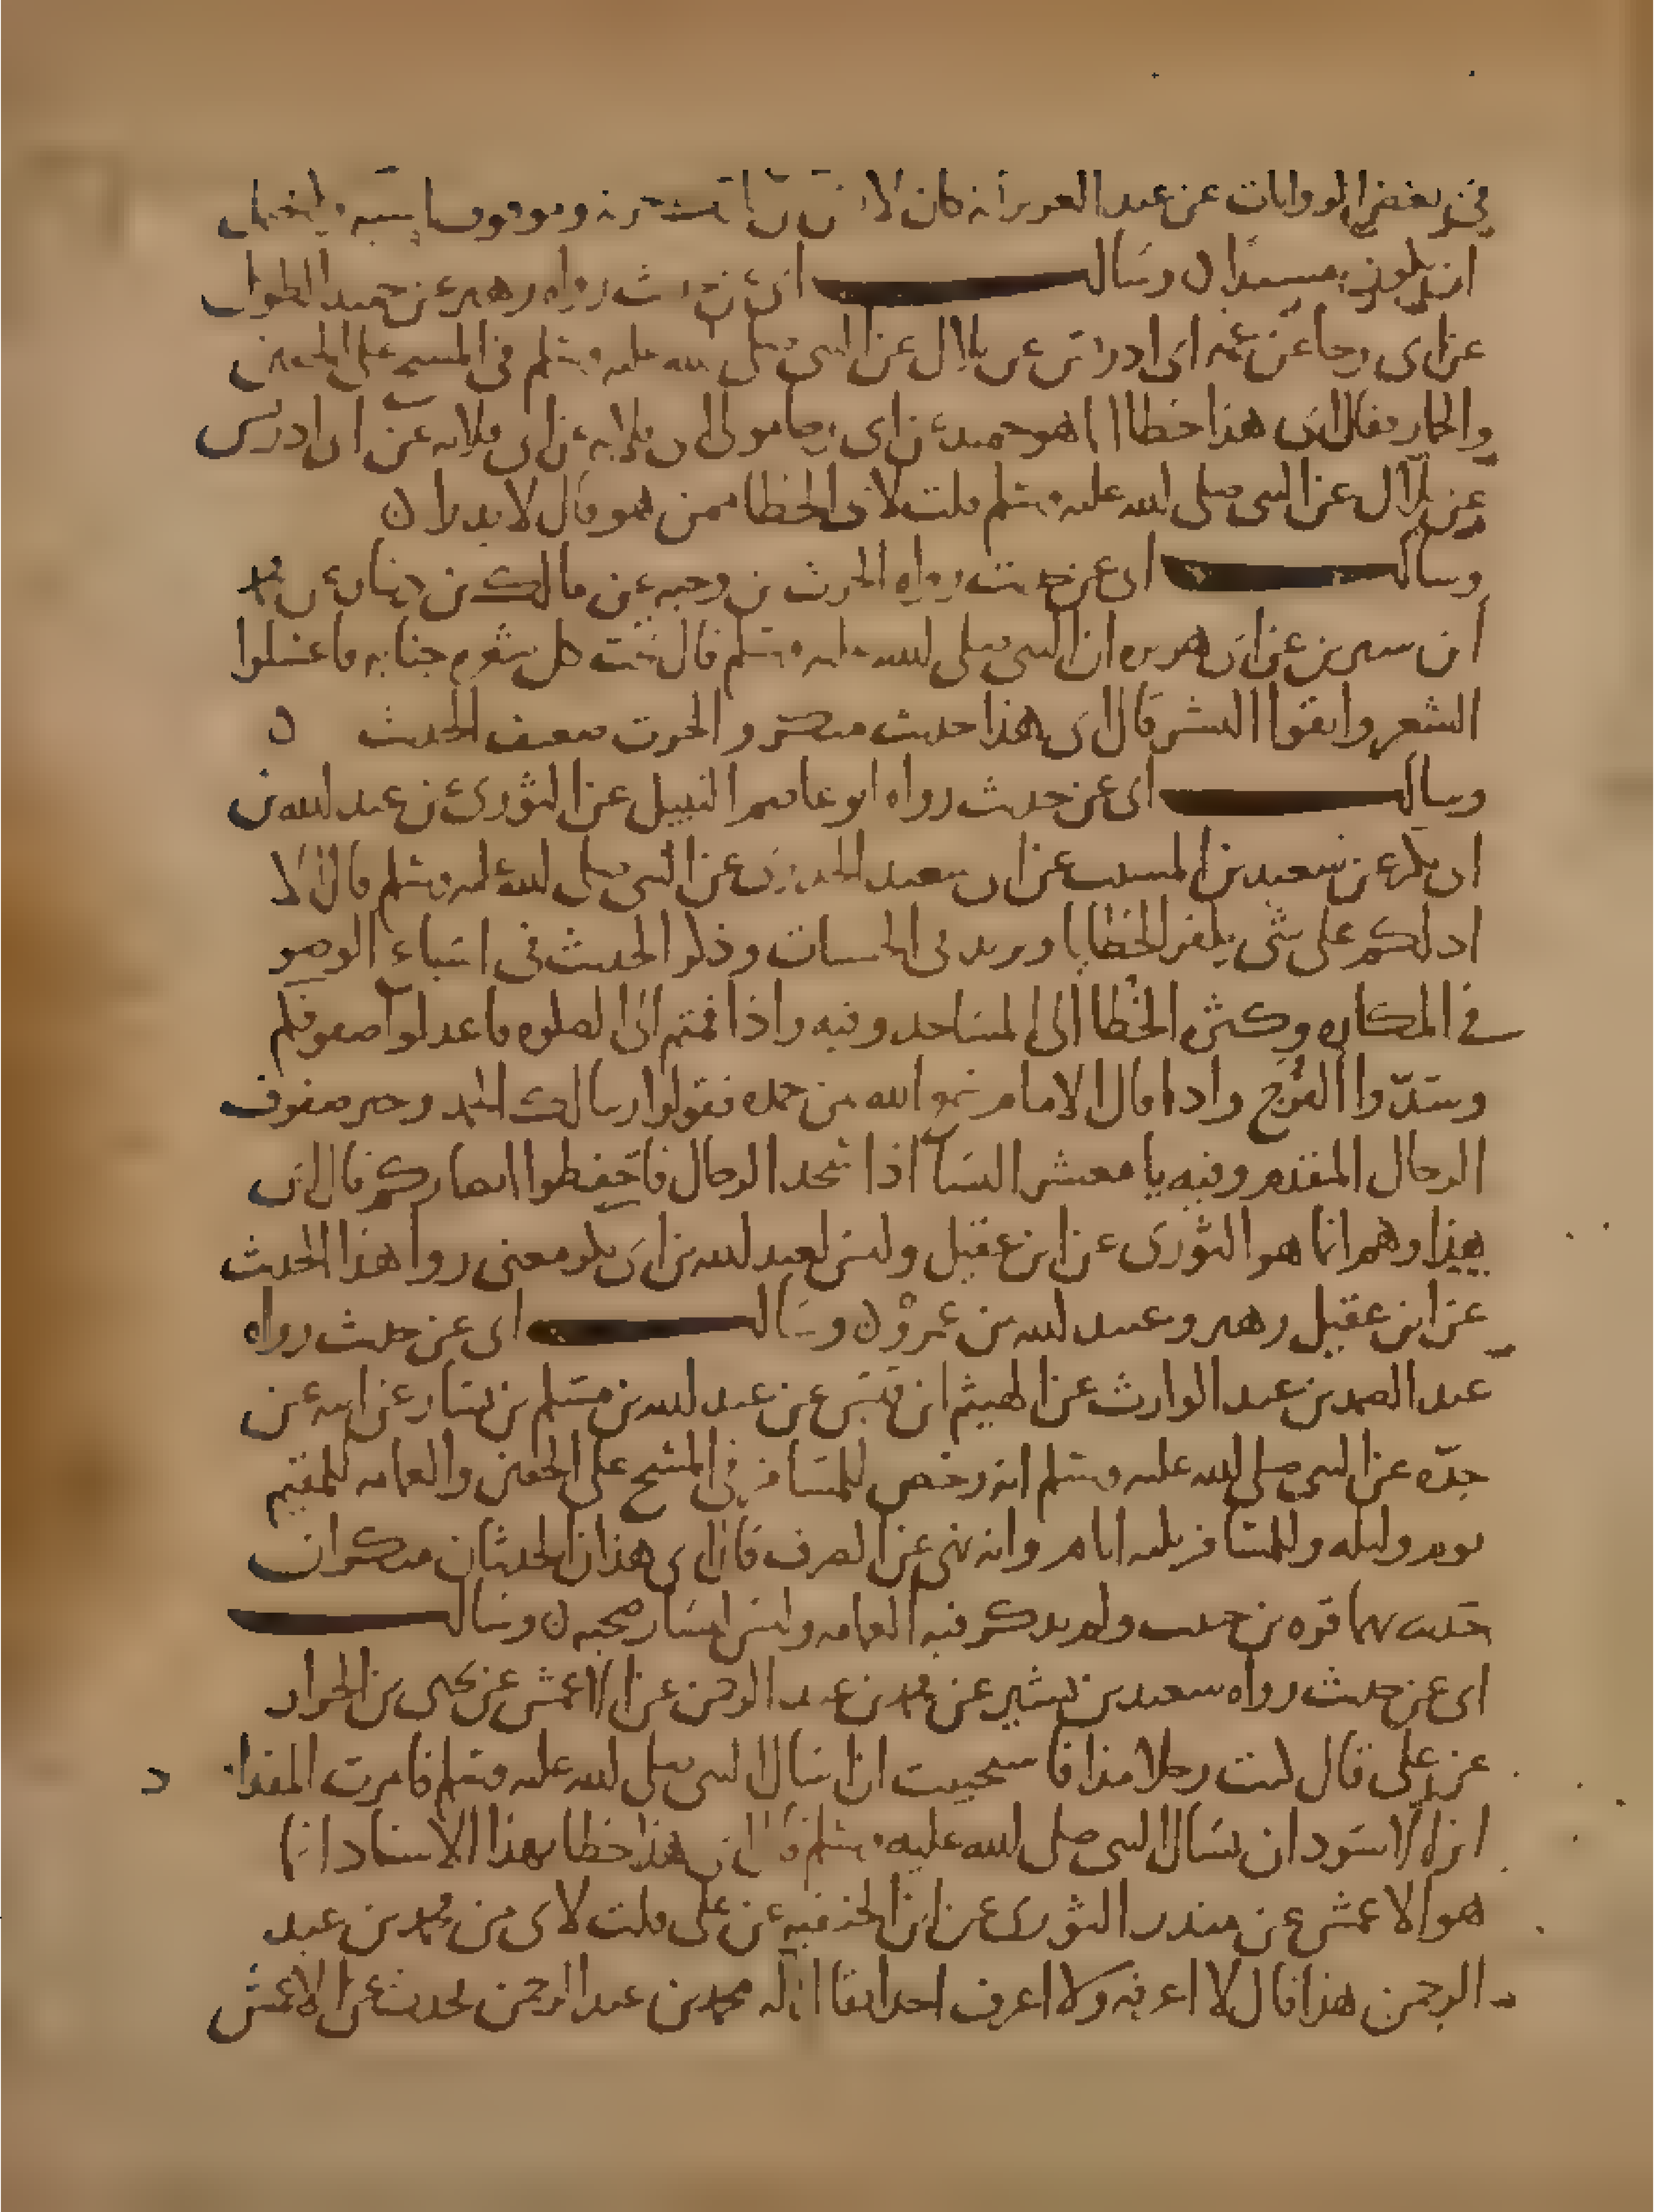 في بعض الروايات عن عبد العزيز انه كان لا
ان يكون مسندا ن وسالـــــت ابي عن حديث رواه زهير عن حميد الطويل
عن ابي رجا عن عمه ابي ادريس عن بلال عن النبي صلى الله عليه وسلم في المسح على الخفين
والخمار فقال ابي هذا خطا انما هو حميد عن ابي رجا مولى ابي قلابه عن ابي قلابه عن ابي ادريس
عن بلال عن النبي صلى الله عليه وسلم قلت لابي الخطا ممن هو قال لا يدرا ن
وسالـــــت ابي عن حديث رواه الحرث بن وجيه عن مالك بن دينار عن محمد
ابن سيرين عن ابي هريره ان النبي صلى الله عليه وسلم قال تحت كل شعره جنابه فاغسلوا
الشعر وانقوا البشر قال ابي هذا حديث منكر والحرث ضعيف الحديث ن
وسالـــــت ابي عن حديث رواه ابو عاصم النبيل عن الثوري عن عبد الله بن
ابي بكر عن سعيد بن المسيب عن ابي سعيد الخدري عن النبي صلى الله عليه وسلم قال الا
ادلكم على شي يكفر الخطايا ويزيد في الحسنات وذكر الحديث في اسباغ الوضو
في المكاره وكثره الخطا الى المساجد وفيه واذا قمتم الى الصلوه فاعدلوا صفوفكم
وسدّوا الفُرَج واذا قال الامام سمع الله لمن حمده فقولوا ربنا لك الحمد وخير صفوف
الرجال المقدم وفيه يا معشر النسآ اذا سجد الرجال فاحفظوا ابصاركم قال ابي
هذا وهم انما هو الثوري عن ابن عقيل وليس لعبد الله بن ابي بكر معنى روا هذا الحديث
عن ابن عقيل زهير وعبيد الله بن عمرو ن وسالـــــت ابي عن حديث رواه
عبد الصمد بن عبد الوارث عن الهيثم ابن قيس عن عبد الله بن مسلم بن يسار عن ابيه عن
جدّه عن النبي صلى الله عليه وسلم انه رخص للمسافر في المسح على الخفين والعمامه للمقيم
يوم وليله وللمسافر ثلثه ايام وانه نهى عن الصرف قال ابي هذان الحديثان منكران
قره بن حبيب ولم يذكر فيه العمامه وليس ليسار صحبه ن وسالـــــت
ابي عن حديث رواه سعيد بن بشير عن محمد بن عبد الرحمن عن الاعمش عن يحيى بن الجزار
عن علي قال كنت رجلا مذا فاستحييت ان اسال النبي صلى الله عليه وسلم فامرت المقداد
ابن الاسود ان يسال النبي صلى الله عليه وسلم قال ابي هذا خطا بهذا الاسناد انما
هو الاعمش عن منذر الثوري عن ابن الحنفيه عن علي قلت لابي من محمد بن عبد
الرحمن هذا قال لا اعرفه ولا اعرف احدا يقال له محمد بن عبد الرحمن يحدث عن الاعمش